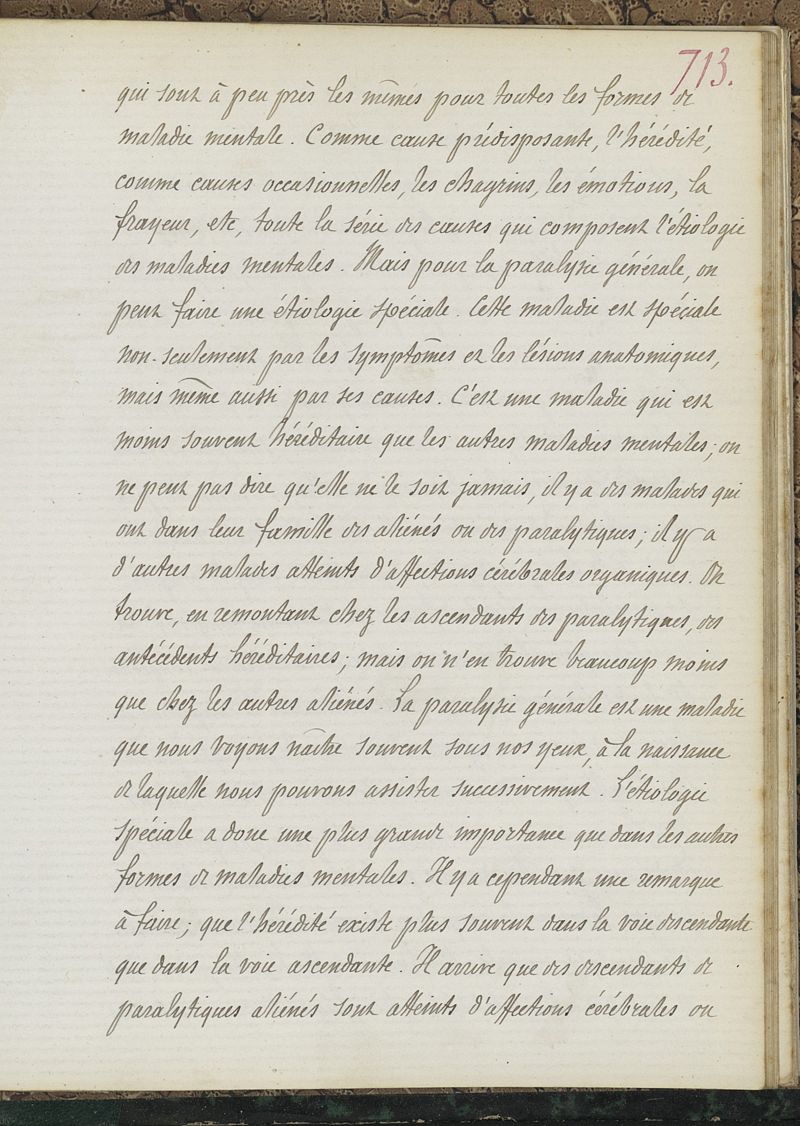 713.
qui sont à peu près les mêmes pour toutes les formes de
maladie mentale. Comme cause prédisposante, l'hérédité,
comme causes occasionnelles, les chagrins, les émotions, la
frayeur, etc, toute la série des causes qui composent l'étiologie
des maladies mentales. Mais pour la paralysie générale, on
peut faire une étiologie spéciale. Cette maladie est spéciale
non-seulement par les symptômes et les lésions anatomiques,
mais même aussi par ses causes. C'est une maladie qui est
moins souvent héréditaire que les autres maladies mentales; on
ne peut pas dire qu'elle ne le soit jamais, il y a des malades qui
ont dans leur famille des aliénés ou des paralytiques; il y a
d'autres malades atteints d'affections cérébrales organiques. On
trouve, en remontant chez les ascendants des paralytiques, des
antécédents héréditaires; mais on n'en trouve beaucoup moins
que chez les autres aliénés. La paralysie générale est une maladie
que nous voyons naître souvent sous nos yeux, à la naissance
de laquelle nous pouvons assister successivement. L'étiologie
spéciale a donc une plus grande importance que dans les autres
formes de maladies mentales. Il y a cependant une remarque
à faire; que l'hérédité existe plus souvent dans la voie descendante
que dans la voie ascendante. Il arrive que des descendants de
paralytiques aliénés sont atteints d'affections cérébrales ou